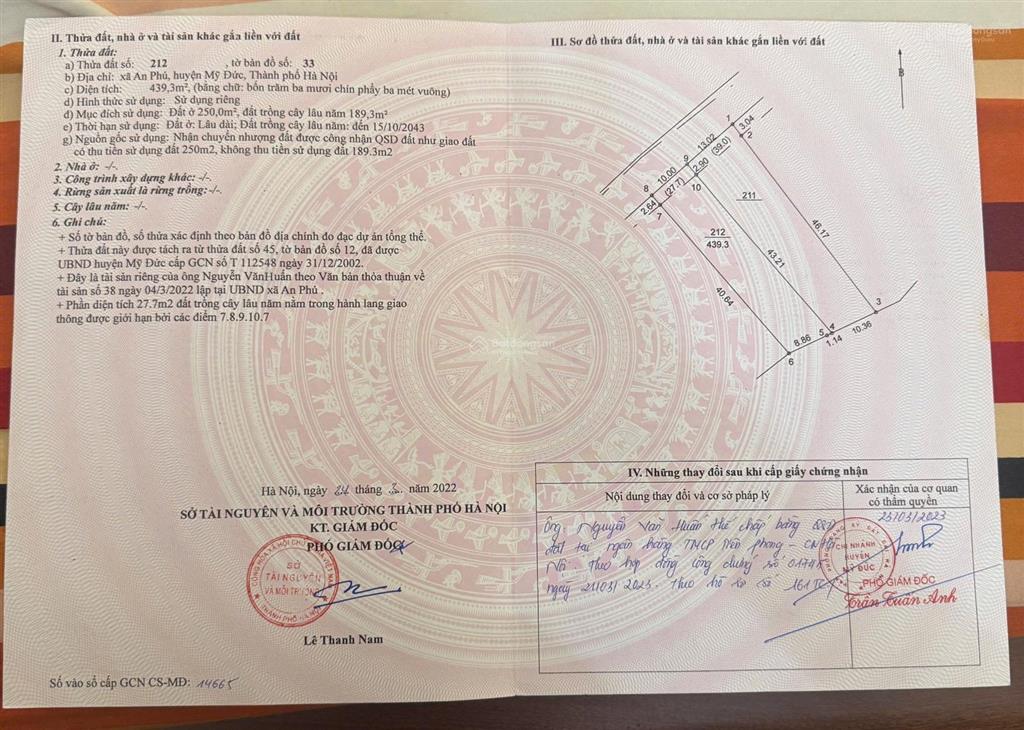 II. Thửa đất, nhà ở và tài sản khác gắn liền với đất
1. Thửa đất:
a) Thửa đất số: 212 , tờ bản đồ số: 33
b) Địa chỉ: xã An Phú, huyện Mỹ Đức, Thành phố Hà Nội
c) Diện tích: 439,3m², (bằng chữ: bốn trăm ba mươi chín phẩy ba mét vuông)
d) Hình thức sử dụng: Sử dụng riêng
đ) Mục đích sử dụng: Đất ở 250,0m², đất trồng cây lâu năm 189,3m²
e) Thời hạn sử dụng: Đất ở: Lâu dài; Đất trồng cây lâu năm: đến 15/10/2043
g) Nguồn gốc sử dụng: Nhận chuyển nhượng đất được công nhận QSD đất như giao đất
có thu tiền sử dụng đất 250m2, không thu tiền sử dụng đất 189.3m2
2. Nhà ở: -/-.
3. Công trình xây dựng khác: -/-.
4. Rừng sản xuất là rừng trồng:-/-.
5. Cây lâu năm: -/-.
6. Ghi chú:
+ Số tờ bản đồ, số thửa xác định theo bản đồ địa chính đo đạc dự án tổng thể.
+ Thửa đất này được tách ra từ thửa đất số 45, tờ bản đồ số 12, đã được
UBND huyện Mỹ Đức cấp GCN số T 112548 ngày 31/12/2002.
+ Đây là tài sản riêng của ông Nguyễn VănHuấn theo Văn bản thỏa thuận về
tài sản số 38 ngày 04/3/2022 lập tại UBND xã An Phú .
+ Phần diện tích 27.7m2 đất trồng cây lâu năm nằm trong hành lang giao
thông được giới hạn bởi các điểm 7.8.9.10.7
Hà Nội, ngày 24 tháng 3 năm 2022
SỞ TÀI NGUYÊN VÀ MÔI TRƯỜNG THÀNH PHỐ HÀ NỘI
KT. GIÁM ĐỐC
PHÓ GIÁM ĐỐC
SỞ
TÀI NGUYÊN
VÀ MÔI TRƯỜNG
THÀNH PHỐ HÀ NỘI
Lê Thanh Nam
Số vào sổ cấp GCN CS-MĐ: 14665
III. Sơ đồ thửa đất, nhà ở và tài sản khác gắn liền với đất
B
1
3.04
2
13.02
(39.0)
9
2.90
10
10.00
(27.7)
8
2.64
7
211
212
439.3
46.17
43.21
40.64
3
10.36
4
5
1.14
8.86
6
Batdongsan
IV. Những thay đổi sau khi cấp giấy chứng nhận
Nội dung thay đổi và cơ sở pháp lý
Xác nhận của cơ quan
có thẩm quyền
Ông: Nguyễn Văn Huấn thế chấp bằng QSD
đất tại ngân hàng TMCP Tiên phong - CN
Nội - Theo hợp đồng công chứng số
ngày 21/03/2023. Theo hồ sơ số
23/03/2023
CHI NHÁNH
HUYỆN
MỸ ĐỨC
PHÓ GIÁM ĐỐC
Trần Tuấn Anh